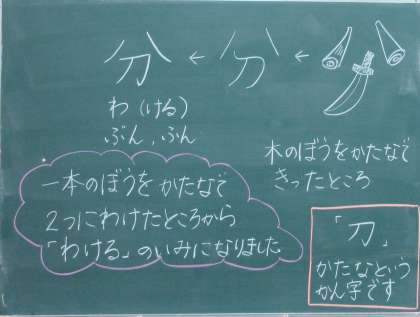 分 ← 分 ←
わ(ける)
ぶん、ぶん
木のぼうをかたなで
きったところ
一本のぼうを かたなで
2つにわけたところから
「わける」のいみになりました。
「刀」
かたなという
かん字です